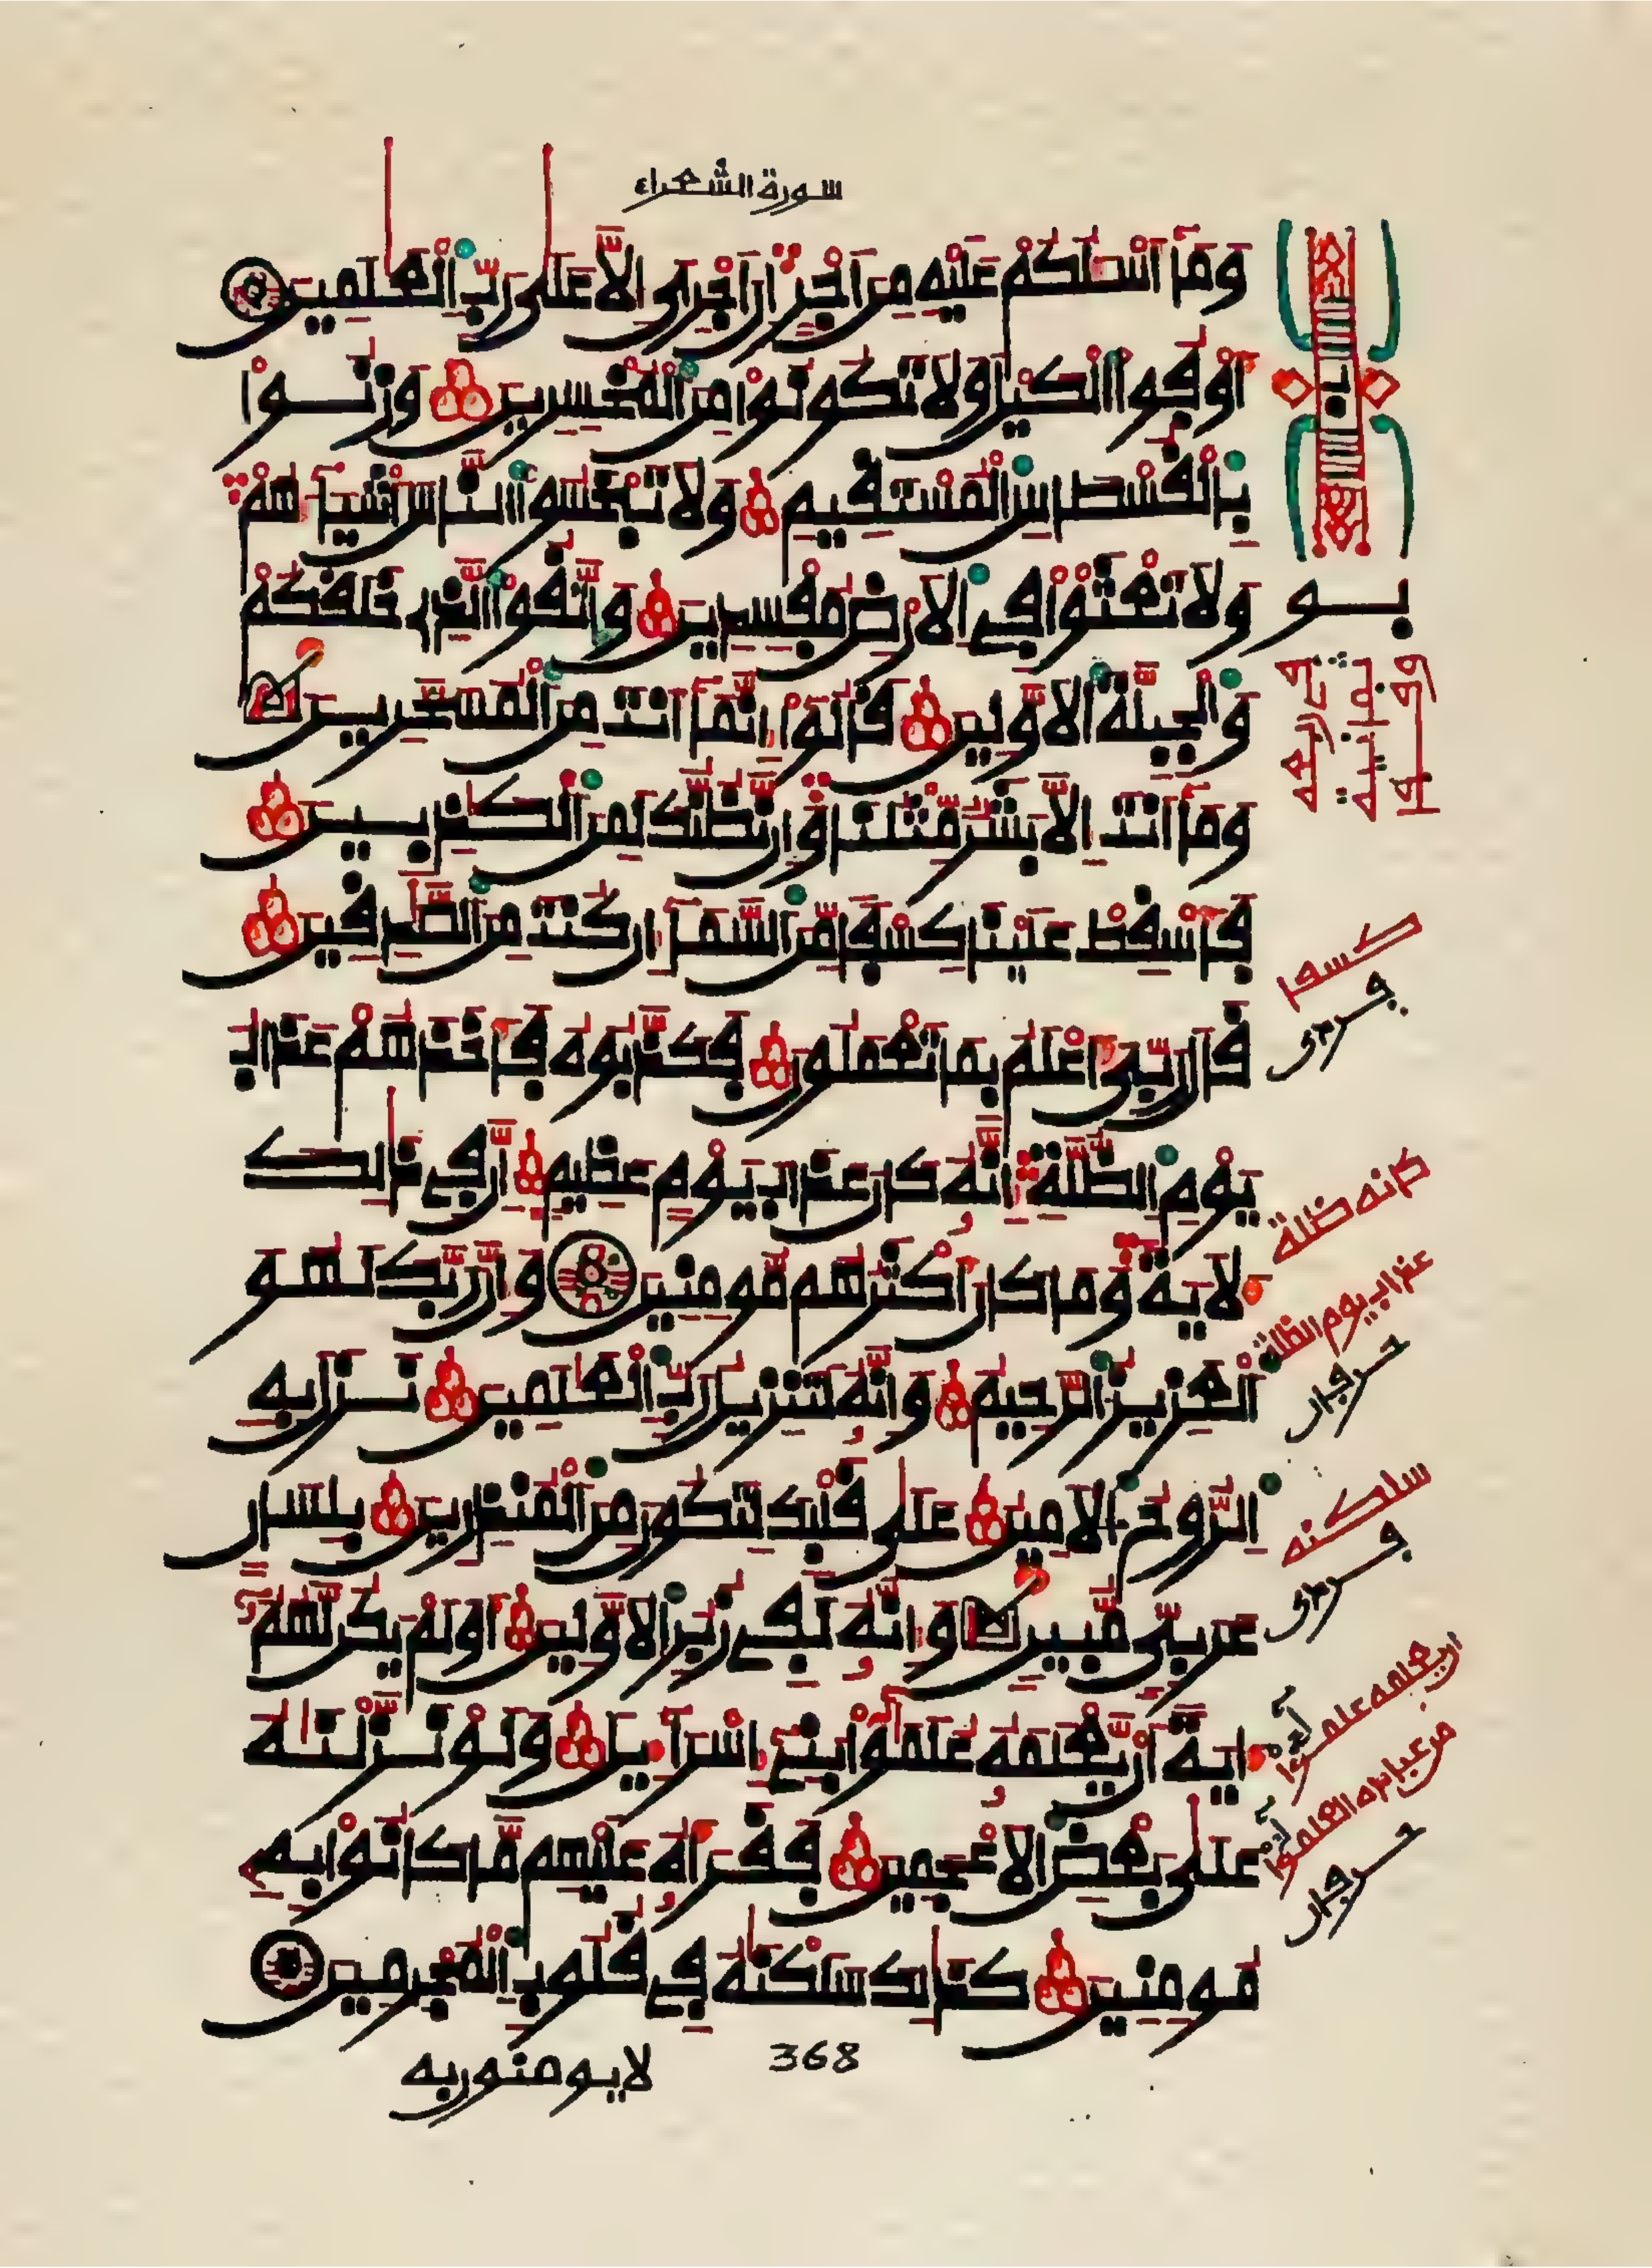 سورة الشعراء
وَمَآ أَسْـَٔلُكُمْ عَلَيْهِ مِنْ أَجْرٍ إِنْ أَجْرِيَ إِلَّا عَلَىٰ رَبِّ الْعَٰلَمِينَ
أَوْفُوا الْكَيْلَ وَلَا تَكُونُوا مِنَ الْمُخْسِرِينَ وَزِنُوا
بِالْقُسْطَاسِ الْمُسْتَقِيمِ وَلَا تَبْخَسُوا النَّاسَ أَشْيَآءَهُمْ
وَلَا تَعْثَوْا فِي الْأَرْضِ مُفْسِدِينَ وَاتَّقُوا الَّذِي خَلَقَكُمْ
وَالْجِبِلَّةَ الْأَوَّلِينَ قَالُوا إِنَّمَآ أَنتَ مِنَ الْمُسَحَّرِينَ
وَمَآ أَنتَ إِلَّا بَشَرٌ مِّثْلُنَا وَإِن نَّظُنُّكَ لَمِنَ الْكَٰذِبِينَ
فَأَسْقِطْ عَلَيْنَا كِسْفًا مِّنَ السَّمَآءِ إِن كُنتَ مِنَ الصَّٰدِقِينَ
قَالَ رَبِّيَ أَعْلَمُ بِمَا تَعْمَلُونَ فَكَذَّبُوهُ فَأَخَذَهُمْ عَذَابُ
يَوْمِ الظُّلَّةِ إِنَّهُ كَانَ عَذَابَ يَوْمٍ عَظِيمٍ إِنَّ فِي ذَٰلِكَ
لَأٓيَةً وَمَا كَانَ أَكْثَرُهُم مُّومِنِينَ وَإِنَّ رَبَّكَ لَهُوَ
الْعَزِيزُ الرَّحِيمُ وَإِنَّهُ لَتَنزِيلُ رَبِّ الْعَٰلَمِينَ نَزَلَ بِهِ
الرُّوحُ الْأَمِينُ عَلَىٰ قَلْبِكَ لِتَكُونَ مِنَ الْمُنذِرِينَ بِلِسَانٍ
عَرَبِيٍّ مُّبِينٍ وَإِنَّهُ لَفِي زُبُرِ الْأَوَّلِينَ أَوَلَمْ يَكُن لَّهُمُ
ءَايَةً أَن يَّعْلَمَهُ عُلَمَٰٓؤُا بَنِي إِسْرَآءِيلَ وَلَوْ نَزَّلْنَٰهُ
عَلَىٰ بَعْضِ الْأَعْجَمِينَ فَقَرَأَهُ عَلَيْهِم مَّا كَانُوا بِهِ
مُومِنِينَ كَذَٰلِكَ سَلَكْنَٰهُ فِي قُلُوبِ الْمُجْرِمِينَ
368
لا يومنون به
كسفا
كانه ظلة
عذاب يوم الظلة
سلكنه
ان يعلمه علمؤا
من عباده العلمؤا